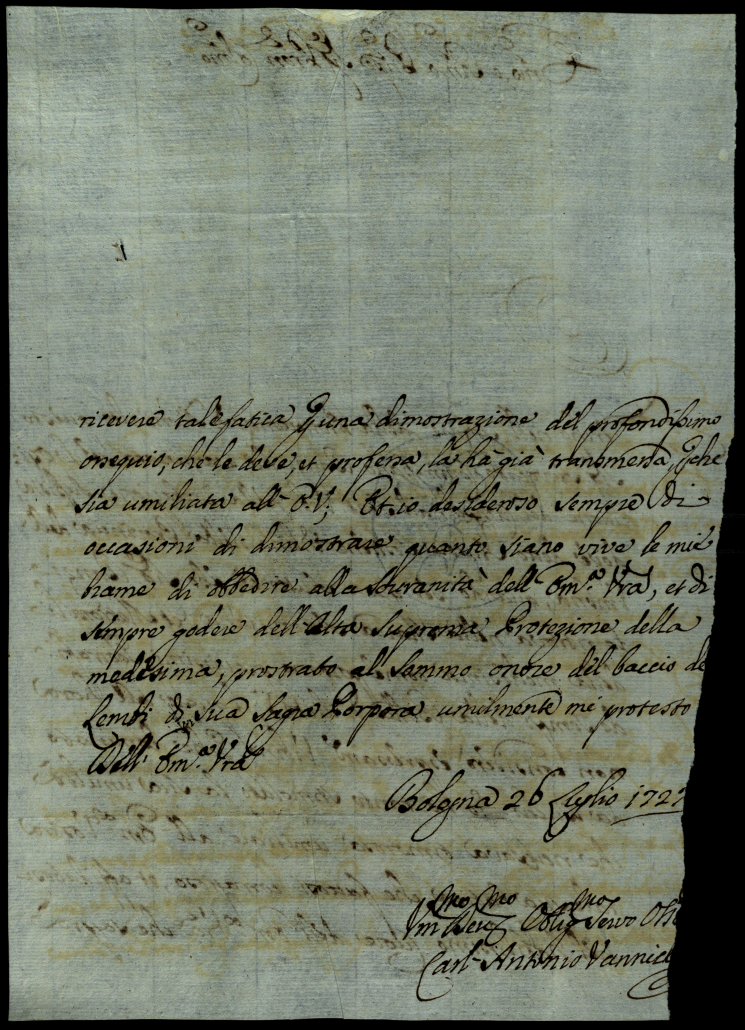 ricevere tale fatica p una dimostrazione del profondissimo
ossequio, che le deve, et professa, la hà già transmessa, pche
sia umiliata all' E.V; Et io desideroso sempre di
occasioni di dimostrare quanto siano vive le mie
brame di obbedire alla Souranità dell' Em.ª Vrã, et di
sempre godere dell' Alta Suprema Protezione della
medesima, prostrato al Sommo onore del baccio de
Lembi di Sua Sagra Porpora umilmente mi protesto
Dell' Em.ª Vrã
Bologna 26 Luglio 1727
Vmo Devmo Obligmo Servo
Carl' Antonio